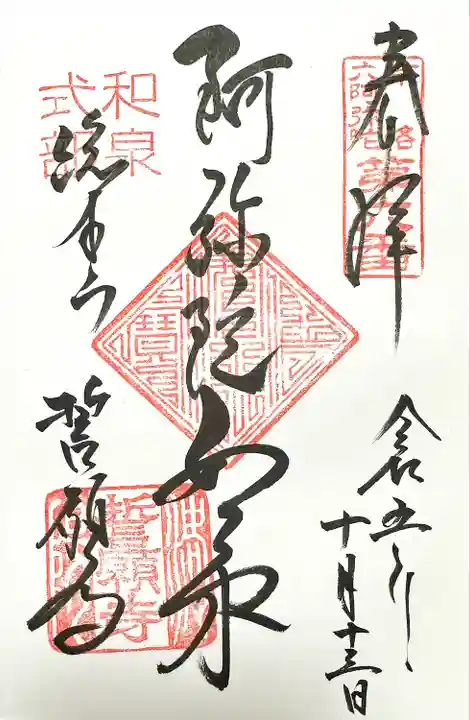 奉拝
六阿弥陀
令和五年
十月十三日
阿弥陀如来
和泉
式部
総本山
誓願寺
誓願寺